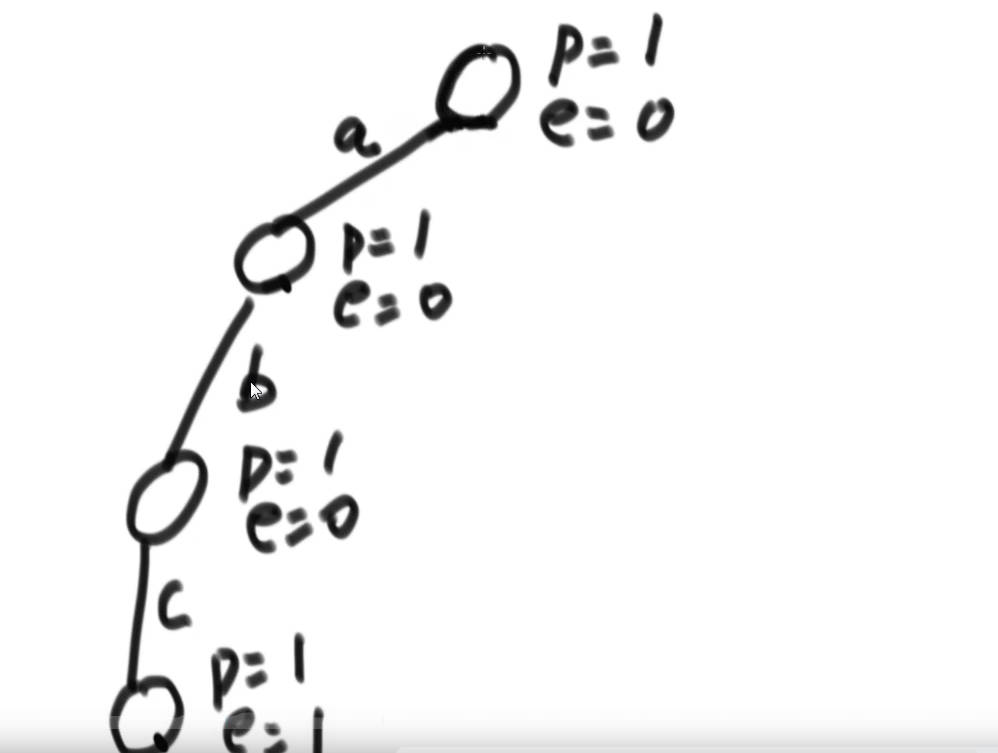 p=1
e=0
a
p=1
e=0
b
p=1
e=0
c
p=1
e=1